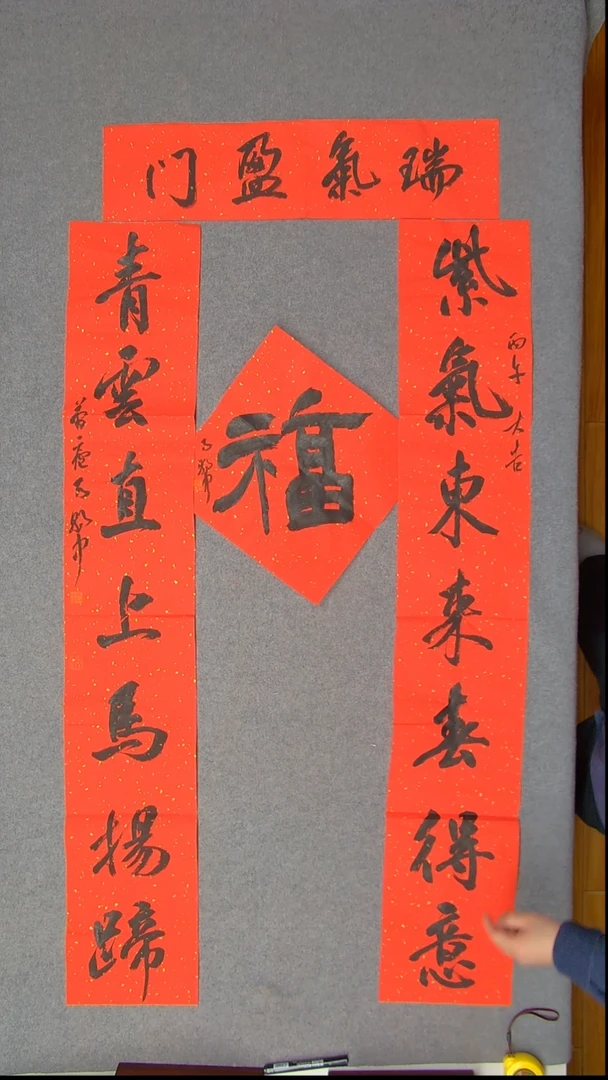 瑞氣盈门
紫氣東来春得意
丙午大吉
福
青雲直上馬揚蹄